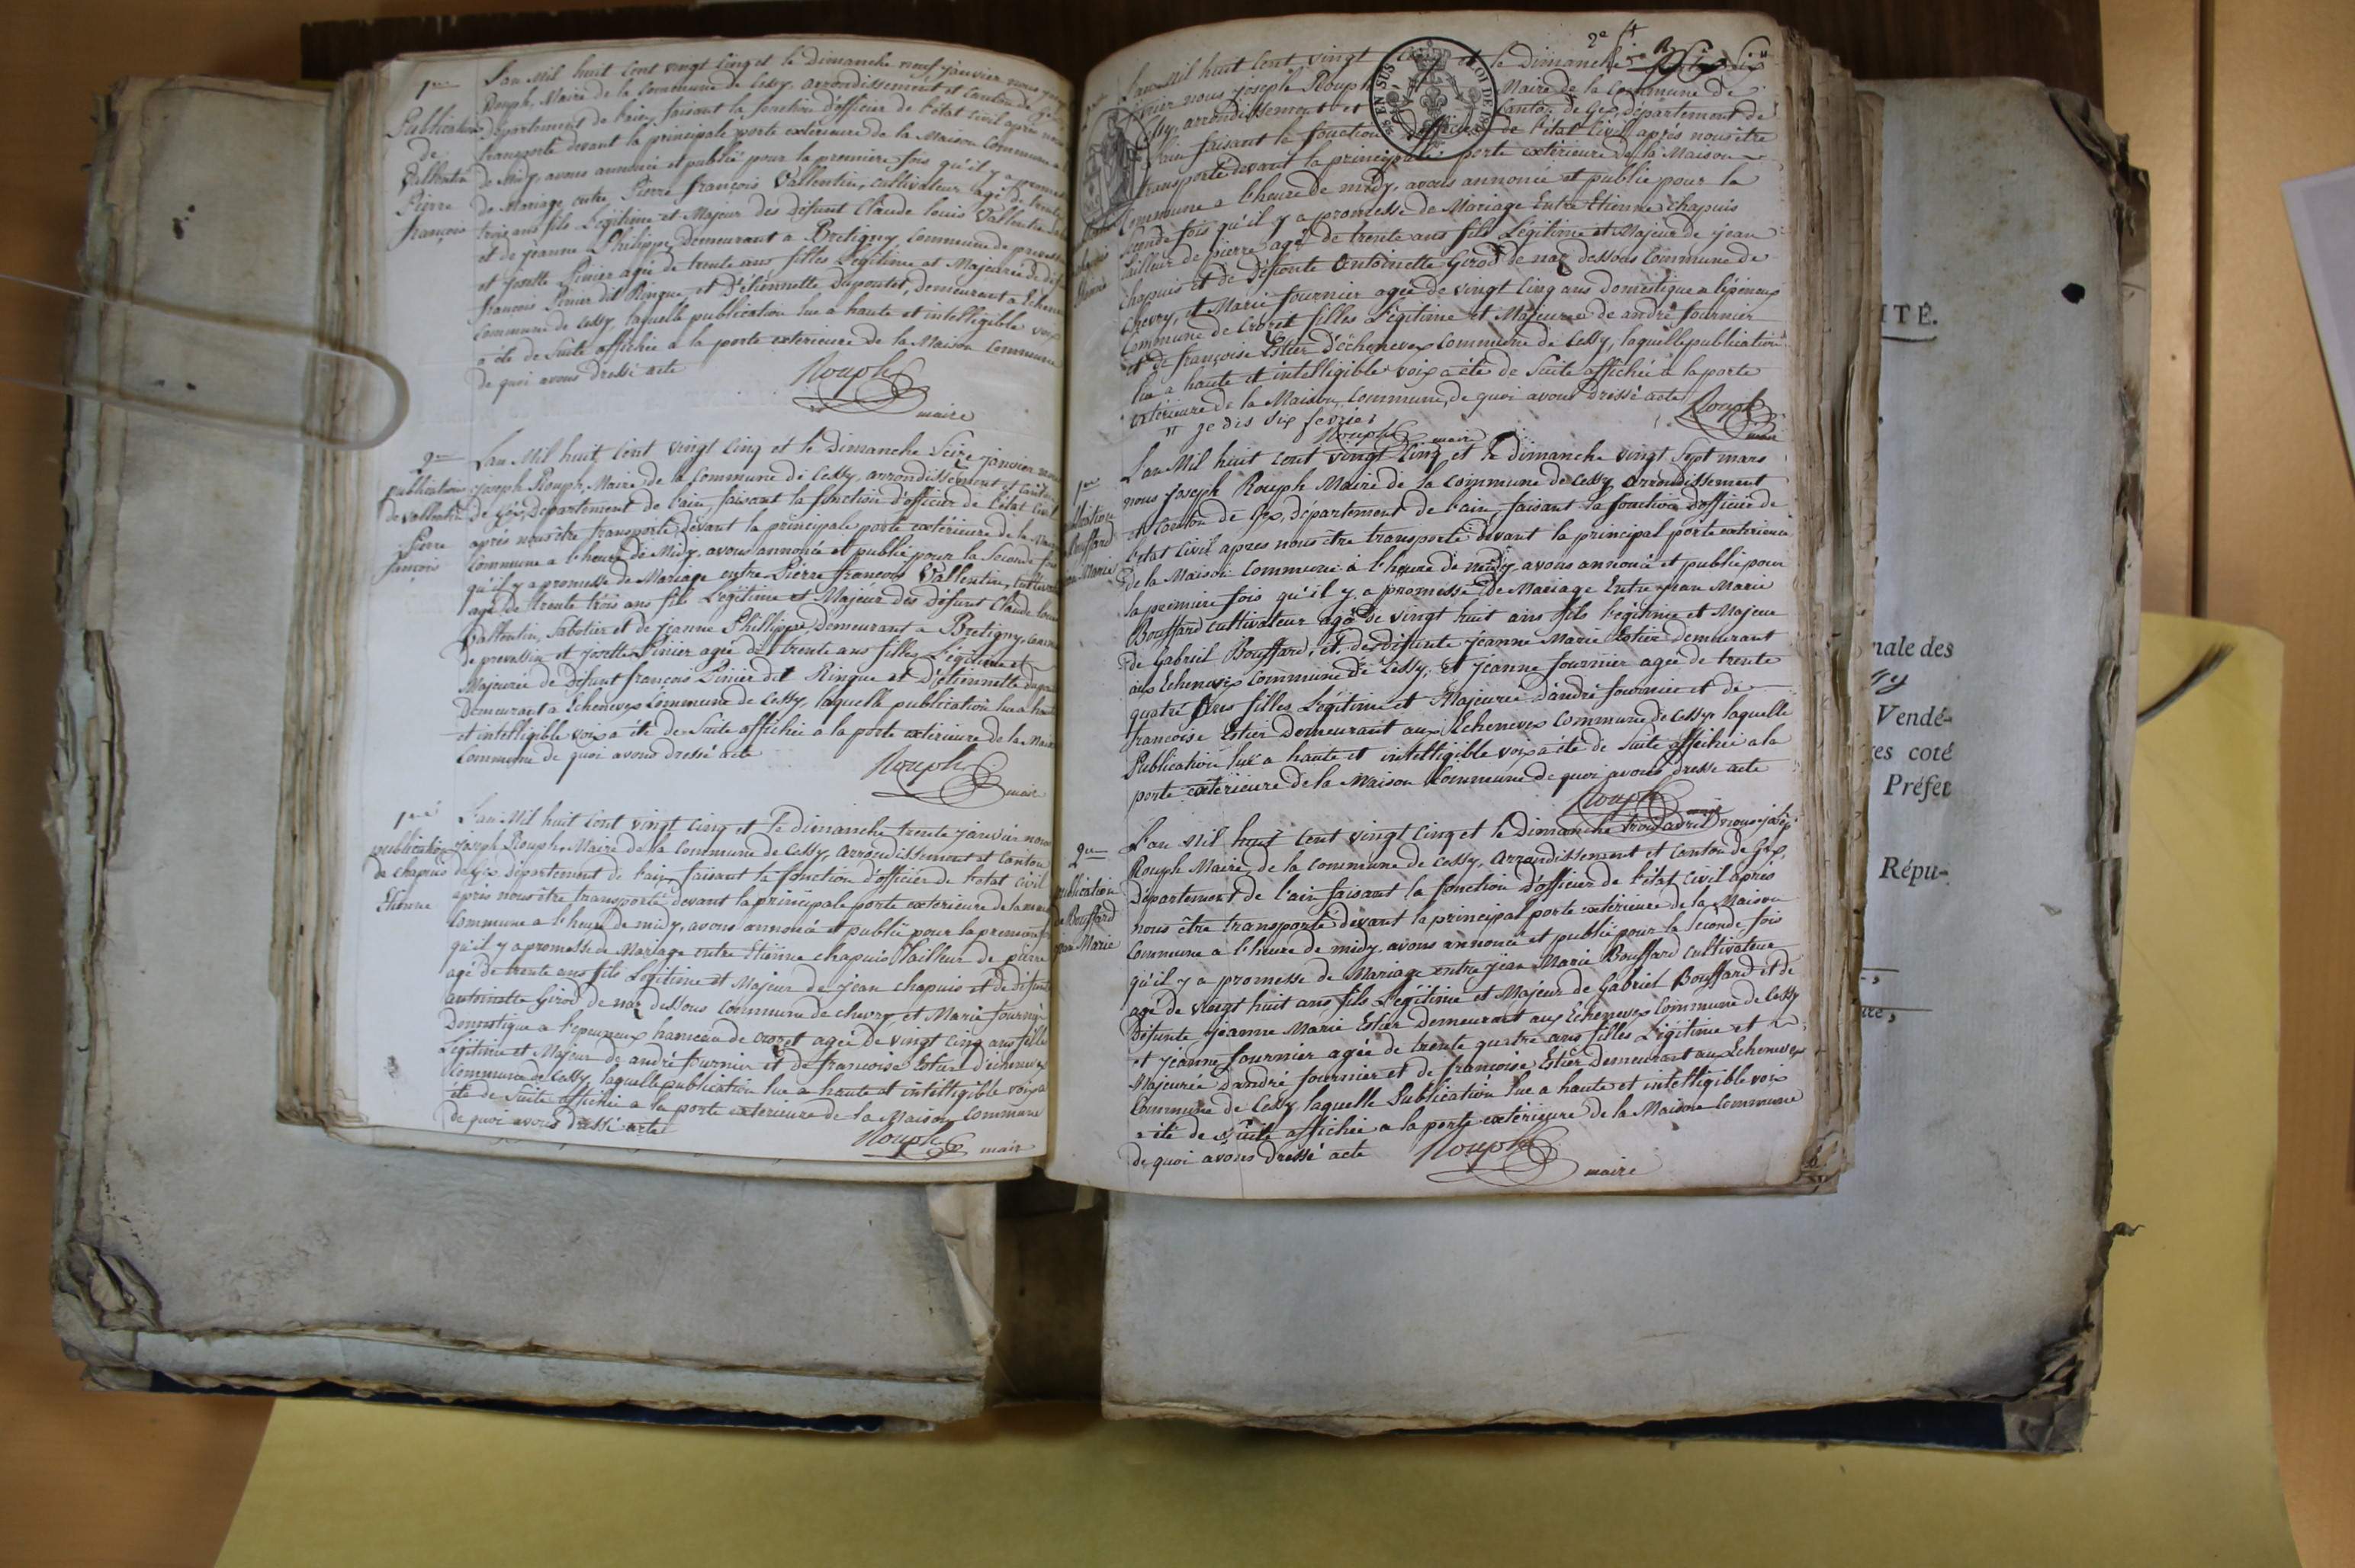 1ere
Publication
de
Vallentin
Pierre
françois
L'an Mil huit Cent vingt Cinq et le dimanche neuf janvier nous
Rouph, Maire de la Commune de Cessy, arrondissement et Canton de
département de l'ain, faisant la fonction d'officier de l'état Civil après nous
transporté devant la principale porte extérieure de la Maison Commune a
de Midy, avons annoncé et publié pour la premiere fois qu'il y a promesse
de Mariage entre Pierre françois Vallentin, cultivateur agé de trente
trois ans fils Légitime et Majeur des défunt Claude louis Vallentin
et de jeanne Philippe, Demeurant a Bretigny Commune de
et josette Pinier agée de trente ans filles Légitime et Majeurée de
françois Pinier dit Ringue, et D'étiennette Dupontet, demeurant a
Commune de Cessy, laquelle publication lue à haute et intelligible voix
a été de Suite affichée a la porte extérieure de la Maison Commune
de quoi avons dressé acte
Rouph
maire
2me
publication
de vallentin
Pierre
françois
L'an Mil huit Cent vingt Cinq et le Dimanche Seize janvier nous
joseph Rouph, Maire de la Commune de Cessy, arrondissement et Canton
de Gex, Département de l'ain, faisant la fonction d'officier de l'état Civil
après nous être transporté devant la principale porte extérieure de la
Commune a l'heure de Midy, avons annoncé et publié pour la Seconde fois
qu'il y a promesse de Mariage entre Pierre françois Vallentin,
agé de trente trois ans fils Légitime et Majeur des Défunt Claude louis
Vallentin, Sabotier et de jeanne Phillippe, Demeurant a Bretigny,
de prevessin et josette Pinier agée de trente ans filles Légitime et
Majeurée de Défunt françois Pinier dit Ringue et D'étiennette
Demeurant a Echenevex Commune de Cessy, laquelle publication lue a haute
et intelligible voix a été de Suite affichée a la porte extérieure de la
Commune de quoi avons dressé acte
Rouph
mair
1ere
publication
de chapuis
Etienne
L'an Mil huit Cent vingt Cinq et le dimanche trente janvier nous
joseph Rouph, Maire de la Commune de Cessy, arrondissement et Canton
de Gex Département de l'ain, faisant la fonction d'officier de l'état Civil
après nous être transporté, devant la principale porte extérieure de la
Commune a l'heure de midy, avons annoncé et publié pour la premiere
qu'il y a promesse de Mariage entre Etienne chapuis Tailleur de pierre
agé de trente ans fils Légitime et Majeur de jean chapuis et de
antoinette Girod de naz dessous Commune de chevry, et Marie
Domestique a l'epeneux hameau de crozet agée de vingt Cinq ans
Légitime et Majeur de andré fournier et de francoise Estier
Commune de Cessy, laquelle publication lue a haute et intelligible voix a
été de Suite affichée a la porte extérieure de la Maison Commune
de quoi avons dressé acte
Rouph
mair
L'an Mil huit Cent vingt et le dimanche
nous joseph Rouph Maire de la Commune de
arrondissement et Canton de Gex, département de
l'ain faisant la fonction d'officier de l'état Civil après nous être
transporté devant la principale porte extérieure de la Maison
Commune a l'heure de midy, avons annoncé et publié pour la
seconde fois qu'il y a promesse de Mariage Entre Etienne chapuis
Tailleur de pierre agé de trente ans fils Légitime et Majeur de jean
chapuis et de Défunte Antoinette Girod de naz dessous Commune de
chevry, et Marie fournier agée de vingt Cinq ans domestique a l'épeneux
Commune de Crozet filles Légitime et Majeurée de andré fournier
et de françoise Estier d'échenevex Commune de Cessy, laquelle publication
lue a haute et intelligible voix a été de Suite affichée a la porte
extérieure de la Maison Commune, de quoi avons dressé acte
je dis six fevrier
Rouph
mair
Rouph
LOI DE
EN SUS
L'an Mil huit Cent vingt Cinq et le dimanche vingt Sept mars
nous joseph Rouph Maire de la Commune de Cessy arrondissement
et Canton de Gex, département de l'ain faisant la fonction d'officier de
l'état Civil apres nous être transporté devant la principal porte extérieure
de la Maison Commune à l'heure de midy, avons annoncé et publié pour
la premiere fois qu'il y a promesse de Mariage Entre jean Marie
Bouffard cultivateur agé de vingt huit ans fils Légitime et Majeur
de Gabriel Bouffard et de défunte jeanne Marie Estier demeurant
aux Echenevex Commune de Cessy, et jeanne fournier agée de trente
quatre ans filles Légitime et Majeurée d'andré fournier et de
francoise Estier Demeurant aux Echenevex Commune de Cessy, laquelle
Publication lue a haute et intelligible voix a été de Suite affichée a la
porte extérieure de la Maison Commune de quoi avons dressé acte
Rouph
mair
2me
publication
de Bouffard
jean Marie
L'an Mil huit Cent vingt Cinq et le Dimanche trois avril nous
Rouph Maire de la Commune de Cessy, arrondissement et Canton de Gex,
Département de l'ain faisant la fonction d'officier de l'état Civil après
nous être transporté devant la principal porte extérieure de la Maison
Commune a l'heure de midy, avons annoncé et publié pour la Seconde fois
qu'il y a promesse de Mariage entre jean Marie Bouffard Cultivateur
agé de vingt huit ans fils Légitime et Majeur de Gabriel Bouffard et de
Défunte jeanne Marie Estier demeurant aux Echenevex Commune de Cessy
et jeanne fournier agée de trente quatre ans filles Légitime et
Majeurée d'andré fournier et de francoise Estier Demeurant aux Echenevex
Commune de Cessy, laquelle Publication lue a haute et intelligible voix
a été de suite affichée a la porte extérieure de la Maison Commune
de quoi avons dressé acte
Rouph
maire
ITÉ.
nale des
Vendé-
es coté
Préfet
Répu-